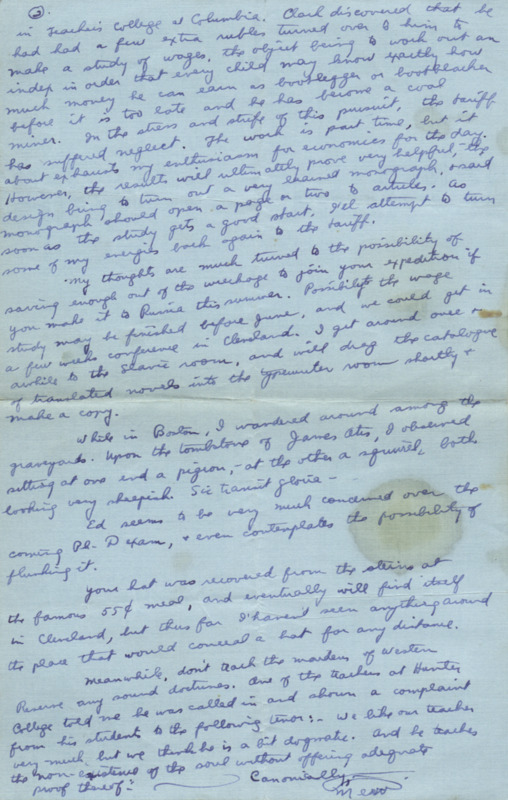 2.
in Teachers College at Columbia. Clark discovered that he
had had a few extra rubles turned over to him to
make a study of wages, the object being to work out an
index in order that every child may know exactly how
much money he can earn as bootlegger or bootblacker
before it is too late and he has become a coal
miner. In the stress and strife of this pursuit, the tariff
has suffered neglect. The work is part time, but it
about exhausts my enthusiasm for economics for the day.
However, the results will ultimately prove very helpful, the
design being to turn out a very learned monograph, & said
monograph should open a page or two to articles. As
soon as the study gets a good start, I'll attempt to turn
some of my energies back again to the tariff.
My thoughts are much turned to the possibility of
saving enough out of the wreckage to join your expedition if
you make it to Russia this summer. Possibly the wage
study may be finished before June, and we could get in
a few weeks conference in Cleveland. I get around once in
awhile to the Slavic room, and will drag the catalogue
of translated novels into the typewriter room shortly &
make a copy.
While in Boston, I wandered around among the
graveyards. Upon the tombstone of James Otis, I observed
sitting at one end a pigeon, - at the other a squirrel, both
looking very sheepish. Sic transit gloria -
Ed seems to be very much concerned over the
coming Ph. D exam, & even contemplates the possibility of
flunking it.
Your hat was recovered from the steins at
the famous 55¢ meal, and eventually will find itself
in Cleveland, but thus far I haven't seen anything around
the place that would conceal a hat for any distance.
Meanwhile, don't teach the maidens of Western
Reserve any sound doctrines. One of the teachers at Hunter
College told me he was called in and shown a complaint
from his students to the following tenor: - We like our teacher
very much, but we think he is a bit dogmatic. And he teaches
the non-existence of the soul without offering adequate
proof thereof."
Canonically,